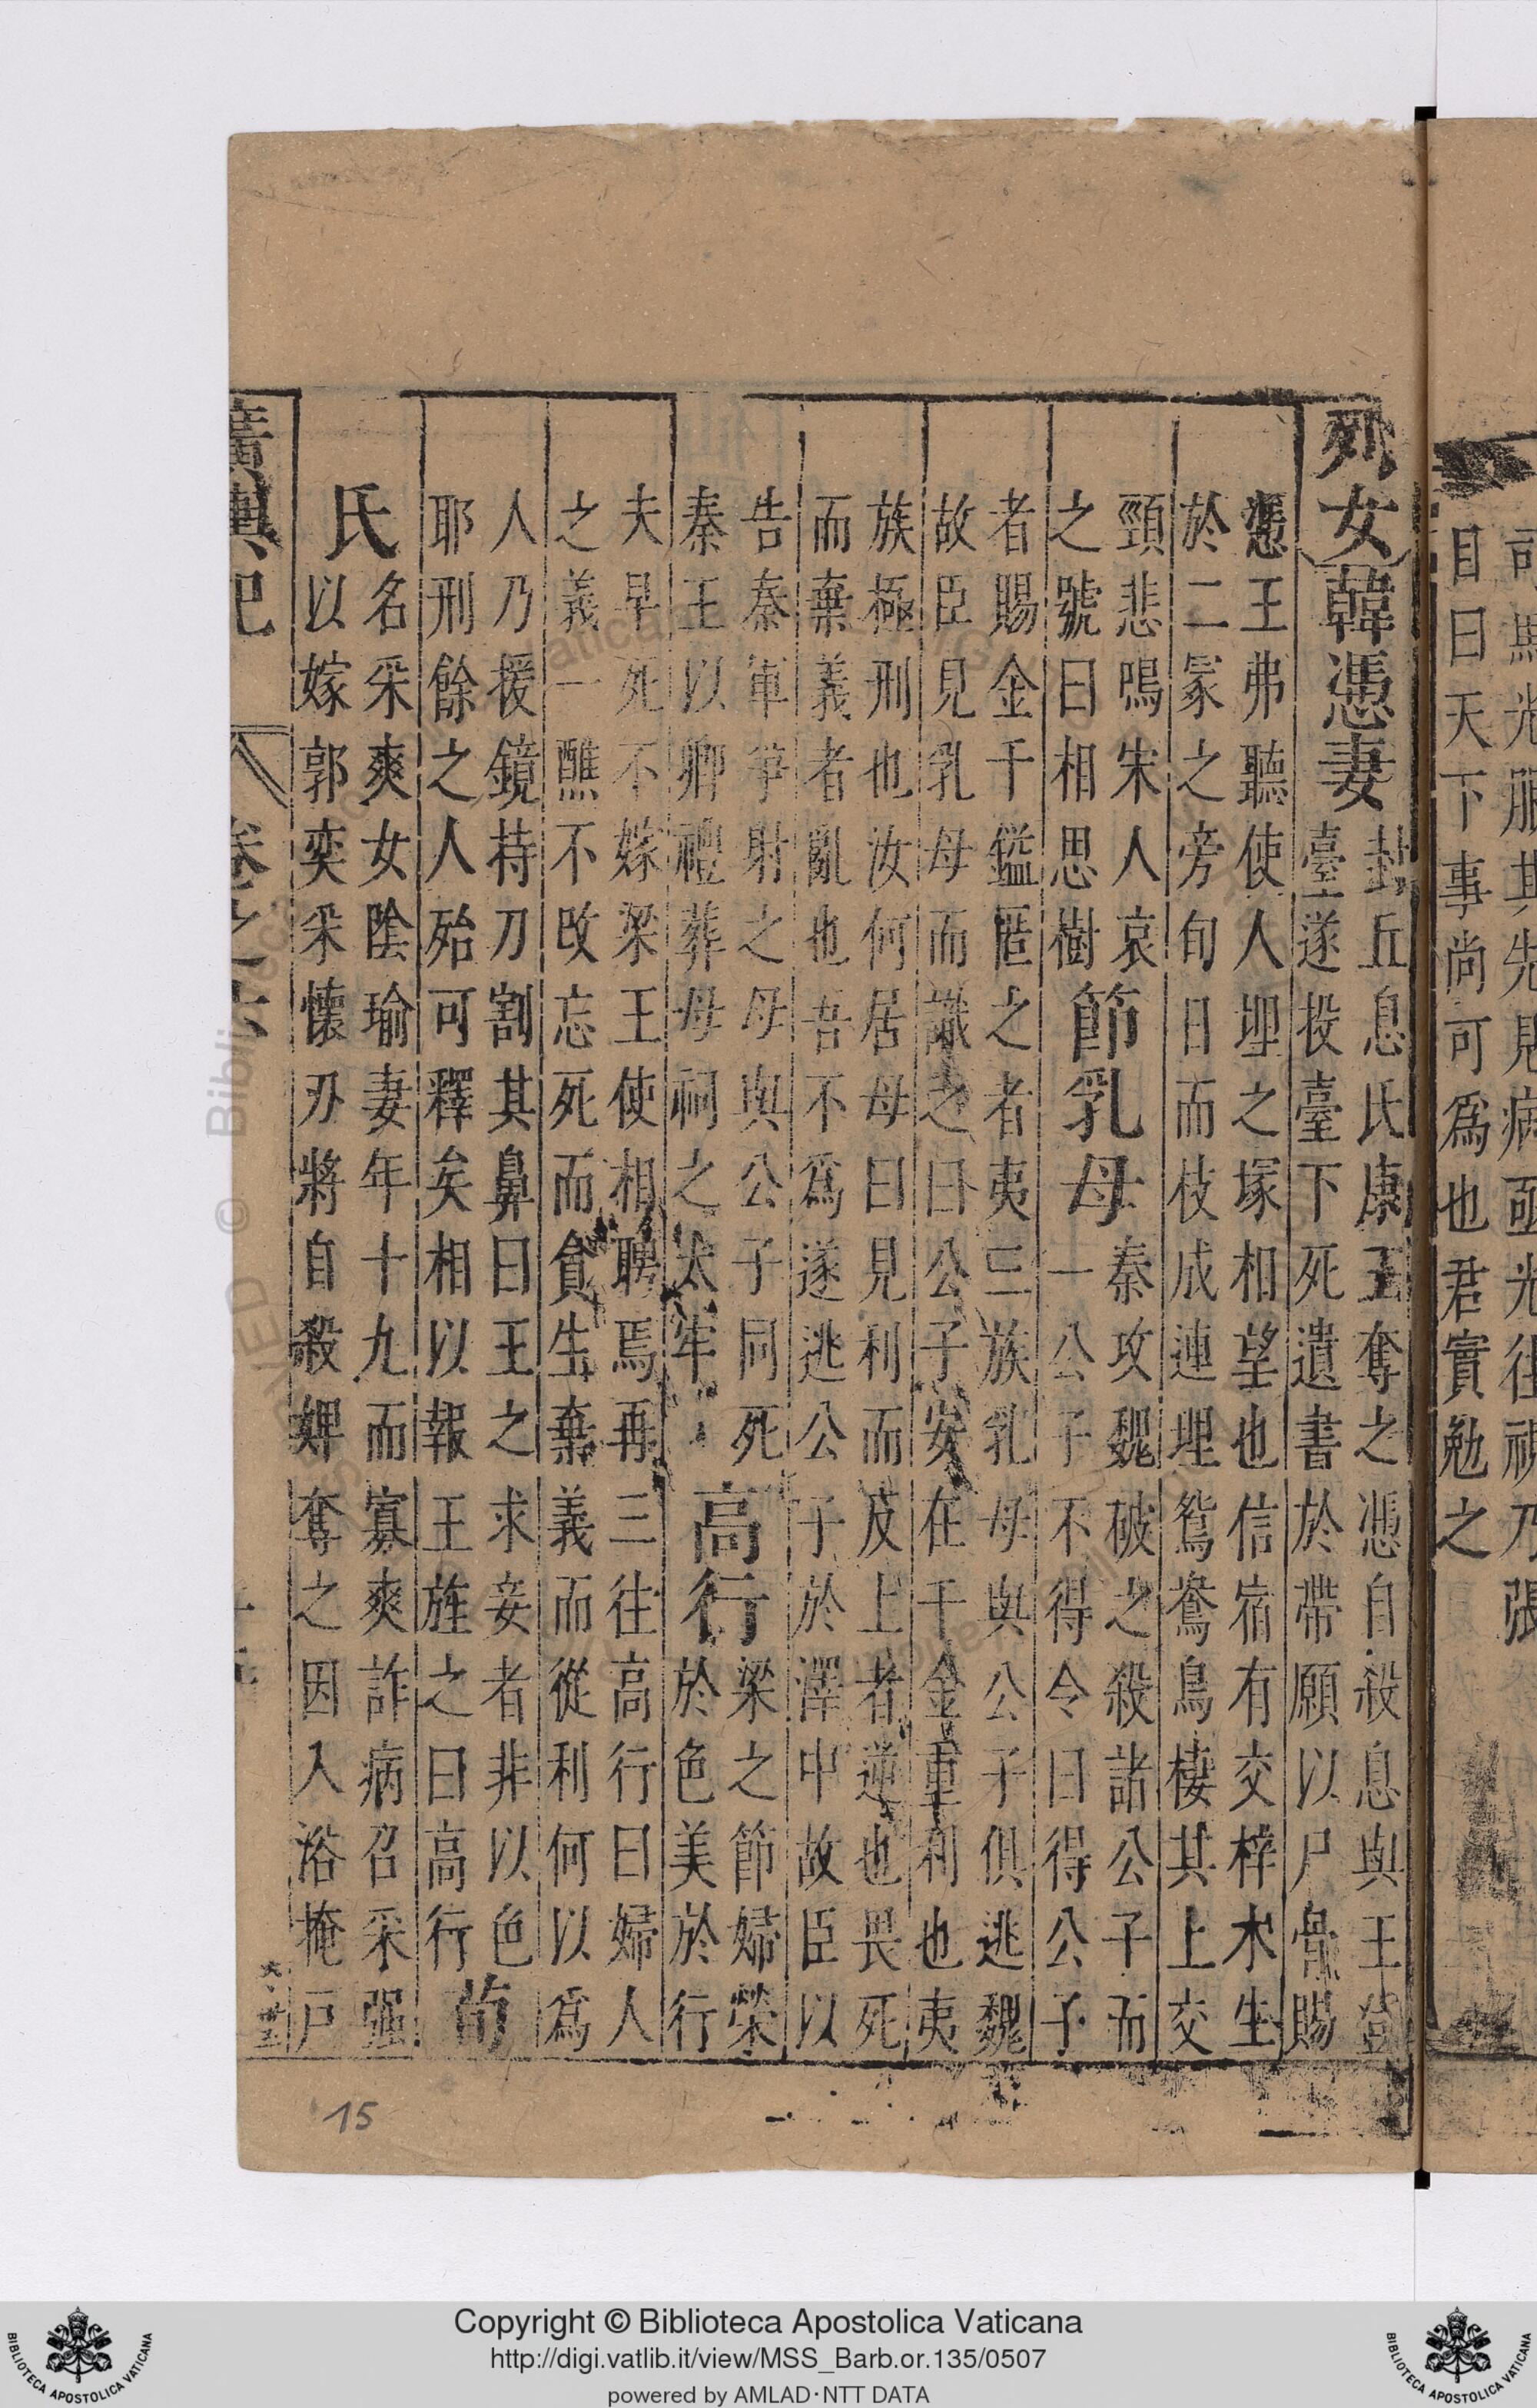 司馬光服其先見病亟光往視乃張
目曰天下事尚可為也君實勉之
列女
韓憑妻
封丘息氏康王奪之憑自殺息與王登
臺遂投臺下死遺書於帶願以尸骨賜
憑王弗聽使人埋之塚相望也信宿有交梓木生
於二冢之旁旬日而枝成連理鴛鴦鳥棲其上交
頸悲鳴宋人哀
之號曰相思樹
節乳母
秦攻魏破之殺諸公子而
一公子不得令曰得公子
者賜金千鎰匿之者夷三族乳母與公子俱逃魏
故臣見乳母而識之曰公子安在千金重利也夷
族極刑也汝何居母曰見利而反上者逆也畏死
而棄義者亂也吾不為遂逃公子於澤中故臣以
告秦秦軍爭射之母與公子同死
秦王以卿禮葬母祠之太牢
高行
梁之節婦榮
於色美於行
夫早死不嫁梁王使相聘焉再三往高行曰婦人
之義一醮不改忘死而貪生棄義而從利何以為
人乃援鏡持刀割其鼻曰王之求妾者非以色
耶刑餘之人殆可釋矣相以報王旌之曰高行
荀
氏
名采爽女陰瑜妻年十九而寡爽詐病召采强
以嫁郭奕采懷刃將自殺婢奪之因入浴掩戶
廣輿記
卷之六
15
Copyright © Biblioteca Apostolica Vaticana
http://digi.vatlib.it/view/MSS_Barb.or.135/0507
powered by AMLAD·NTT DATA
BIBLIOTECA APOSTOLICA VATICANA
BIBLIOTECA APOSTOLICA VATICANA